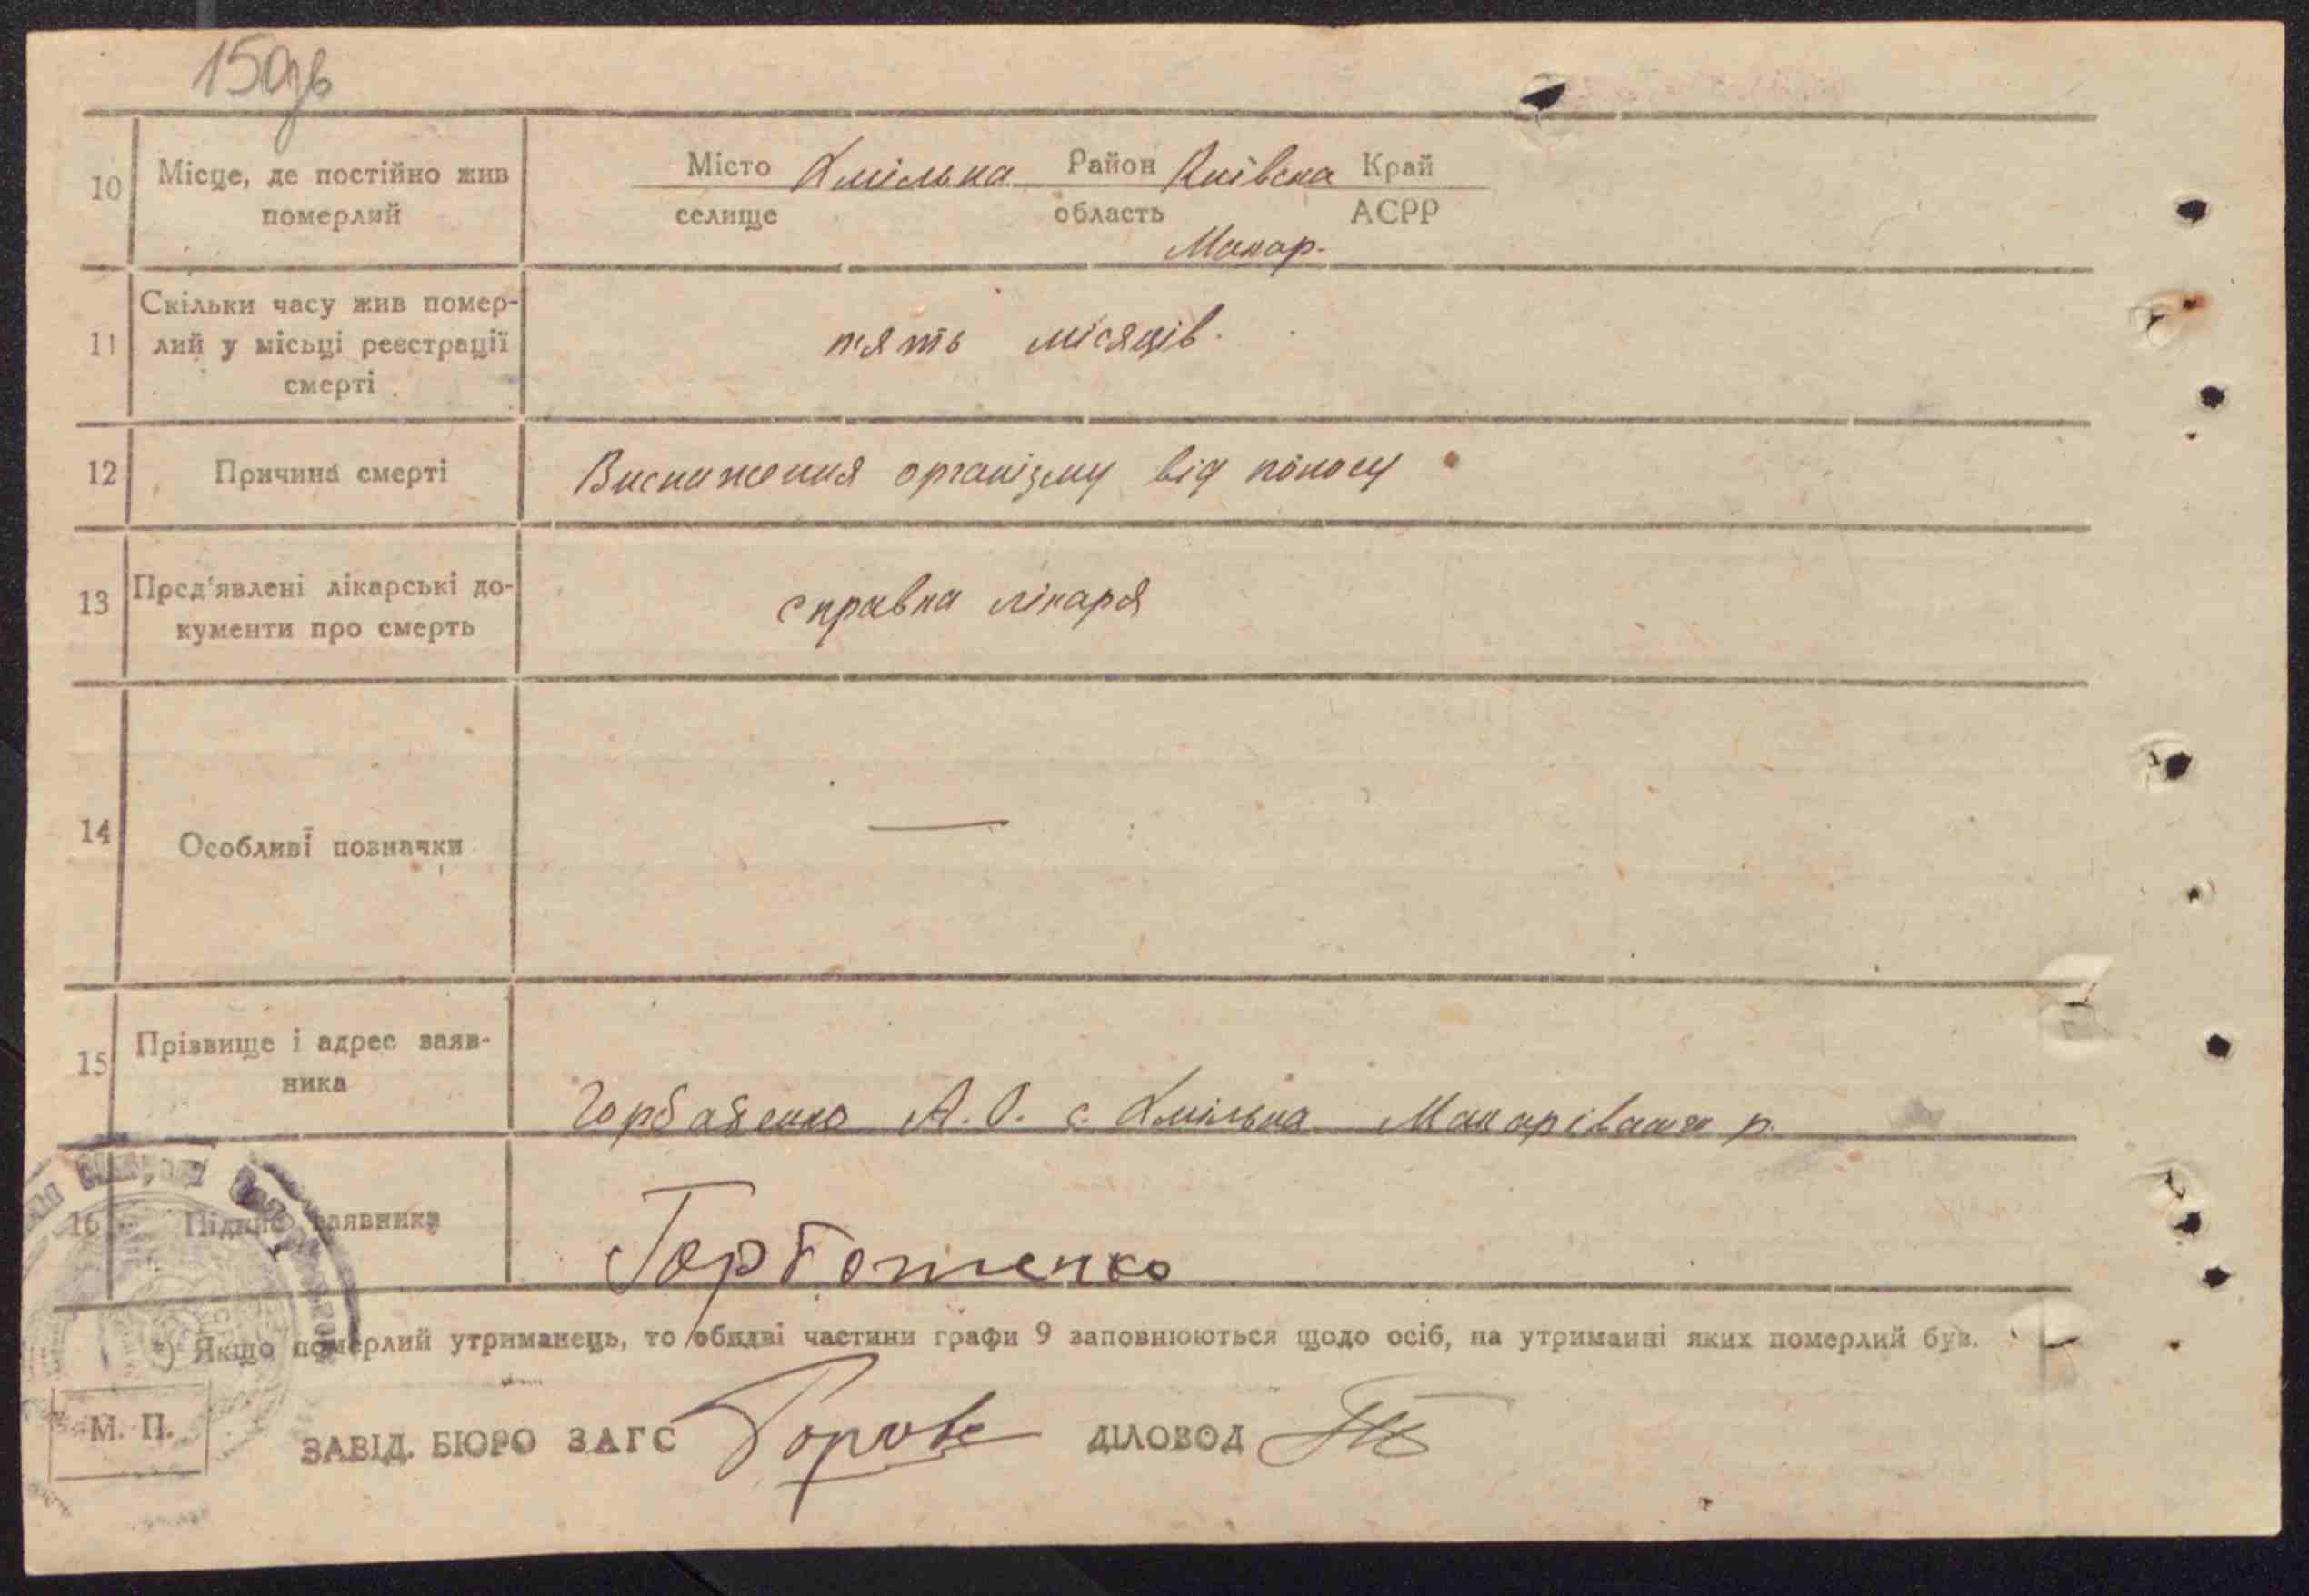 150зв
10 Місце, де постійно жив
померлий
Місто Хмільна Район Київска Край
селище область АСРР
Макар.
11 Скільки часу жив помер-
лий у місьці реєстрації
смерті
пять місяців.
12 Причина смерті Виснаження організму від поносу
13 Пред'явлені лікарські до-
кументи про смерть
справка лікаря
14 Особливі позначки —
15 Прізвище і адрес заяв-
ника
А. О. с. Хмільна р.
16 Підпис заявника
*) Якщо померлий утриманець, то обидві частини графи 9 заповнюються щодо осіб, на утриманні яких померлий був.
М. П.
ЗАВІД. БЮРО ЗАГС ДІЛОВОД